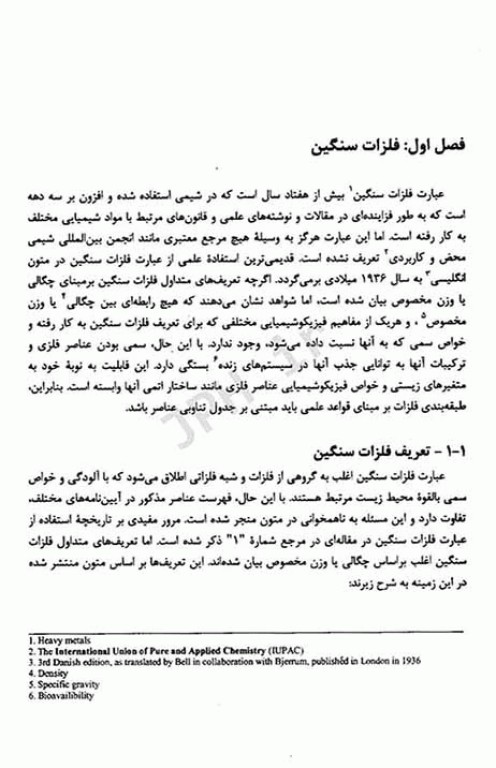 فصل اول: فلزات سنگین
عبارت فلزات سنگین¹ بیش از هفتاد سال است که در شیمی استفاده شده و افزون بر سه دهه
است که به طور فزاینده‌ای در مقالات و نوشته‌های علمی و قانون‌های مرتبط با مواد شیمیایی مختلف
به کار رفته است. اما این عبارت هرگز به وسیلهٔ هیچ مرجع معتبری مانند انجمن بین‌المللی شیمی
محض و کاربردی² تعریف نشده است. قدیمی‌ترین استفادهٔ علمی از عبارت فلزات سنگین در متون
انگلیسی³ به سال ۱۹۳۶ میلادی برمی‌گردد. اگرچه تعریف‌های متداول فلزات سنگین برمبنای چگالی
یا وزن مخصوص بیان شده است، اما شواهد نشان می‌دهند که هیچ رابطه‌ای بین چگالی⁴ یا وزن
مخصوص⁵، و هریک از مفاهیم فیزیکوشیمیایی مختلفی که برای تعریف فلزات سنگین به کار رفته و
خواص سمی که به آنها نسبت داده می‌شود، وجود ندارد. با این حال، سمی بودن عناصر فلزی و
ترکیبات آنها به توانایی جذب آنها در سیستم‌های زنده⁶ بستگی دارد. این قابلیت به نوبهٔ خود به
متغیرهای زیستی و خواص فیزیکوشیمیایی عناصر فلزی مانند ساختار اتمی آنها وابسته است. بنابراین،
طبقه‌بندی فلزات بر مبنای قواعد علمی باید مبتنی بر جدول تناوبی عناصر باشد.
۱-۱- تعریف فلزات سنگین
عبارت فلزات سنگین اغلب به گروهی از فلزات و شبه فلزاتی اطلاق می‌شود که با آلودگی و خواص
سمی بالقوهٔ محیط زیست مرتبط هستند. با این حال، فهرست عناصر مذکور در آیین‌نامه‌های مختلف،
تفاوت دارد و این مسئله به ناهمخوانی در متون منجر شده است. مرور مفیدی بر تاریخچهٔ استفاده از
عبارت فلزات سنگین در مقاله‌ای در مرجع شمارهٔ "۱" ذکر شده است. اما تعریف‌های متداول فلزات
سنگین اغلب براساس چگالی یا وزن مخصوص بیان شده‌اند. این تعریف‌ها بر اساس متون منتشر شده
در این زمینه به شرح زیرند:
1. Heavy metals
2. The International Union of Pure and Applied Chemistry (IUPAC)
3. 3rd Danish edition, as translated by Bell in collaboration with Bjerrum, published in London in 1936
4. Density
5. Specific gravity
6. Bioavailibility